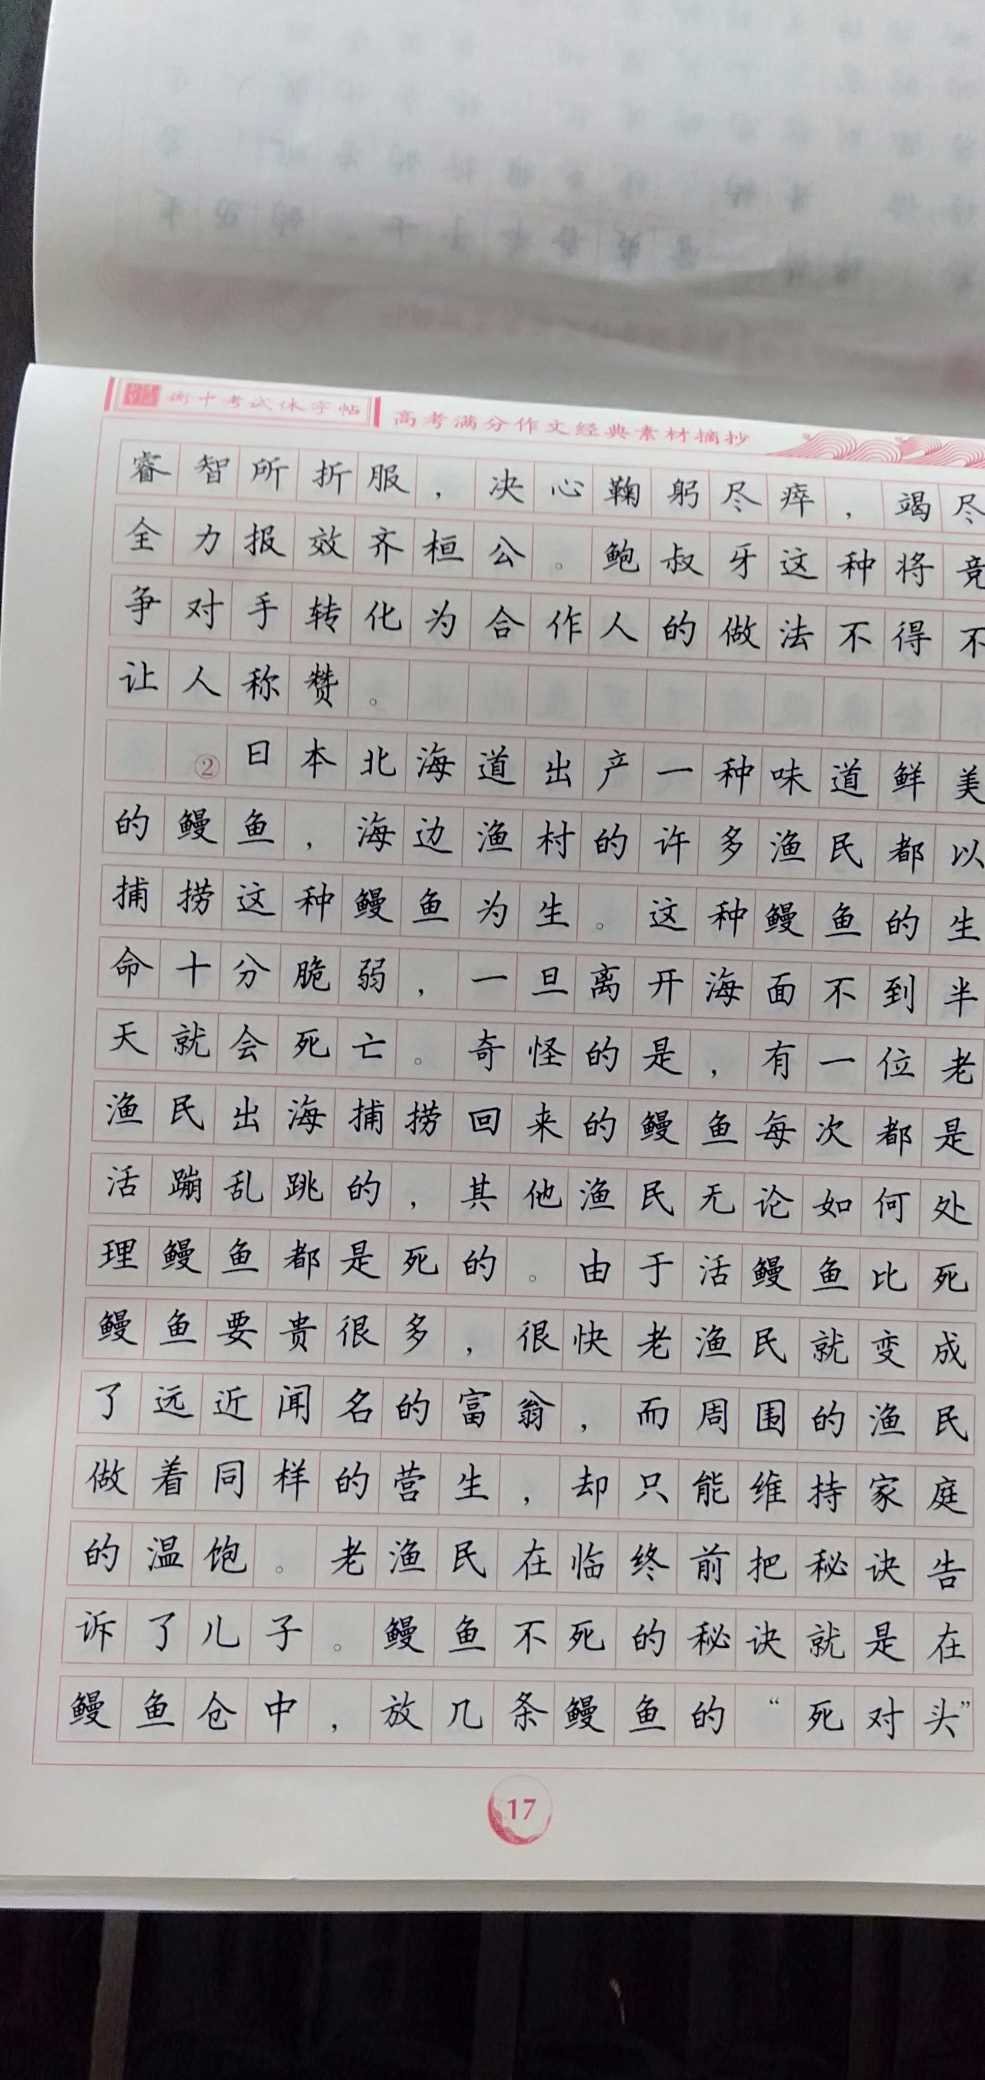 衡中考试体字帖 高考满分作文经典素材摘抄
睿智所折服，决心鞠躬尽瘁，竭尽
全力报效齐桓公。鲍叔牙这种将竞
争对手转化为合作人的做法不得不
让人称赞。
②日本北海道出产一种味道鲜美
的鳗鱼，海边渔村的许多渔民都以
捕捞这种鳗鱼为生。这种鳗鱼的生
命十分脆弱，一旦离开海面不到半
天就会死亡。奇怪的是，有一位老
渔民出海捕捞回来的鳗鱼每次都是
活蹦乱跳的，其他渔民无论如何处
理鳗鱼都是死的。由于活鳗鱼比死
鳗鱼要贵很多，很快老渔民就变成
了远近闻名的富翁，而周围的渔民
做着同样的营生，却只能维持家庭
的温饱。老渔民在临终前把秘诀告
诉了儿子。鳗鱼不死的秘诀就是在
鳗鱼仓中，放几条鳗鱼的“死对头”
17